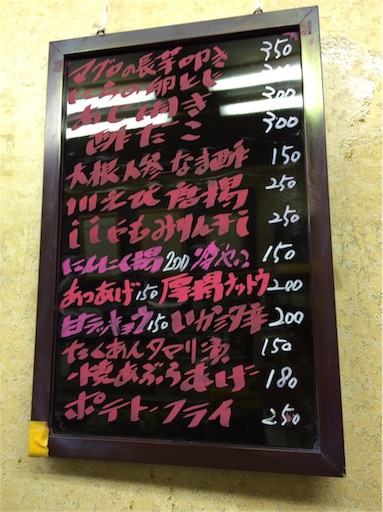 マグロの長芋叩き 350
にらの卵とじ
あじ開き 300
酢だこ 300
大根人参なま酢 150
川えび唐揚 250
ししゃもみりん干し 250
にんにく揚 200 冷やっこ 150
あつあげ 150 厚揚ナットウ 200
甘ラッキョウ 150 いか三升辛 200
たくあんタマリ漬 150
焼あぶらあげ 180
ポテトフライ 250